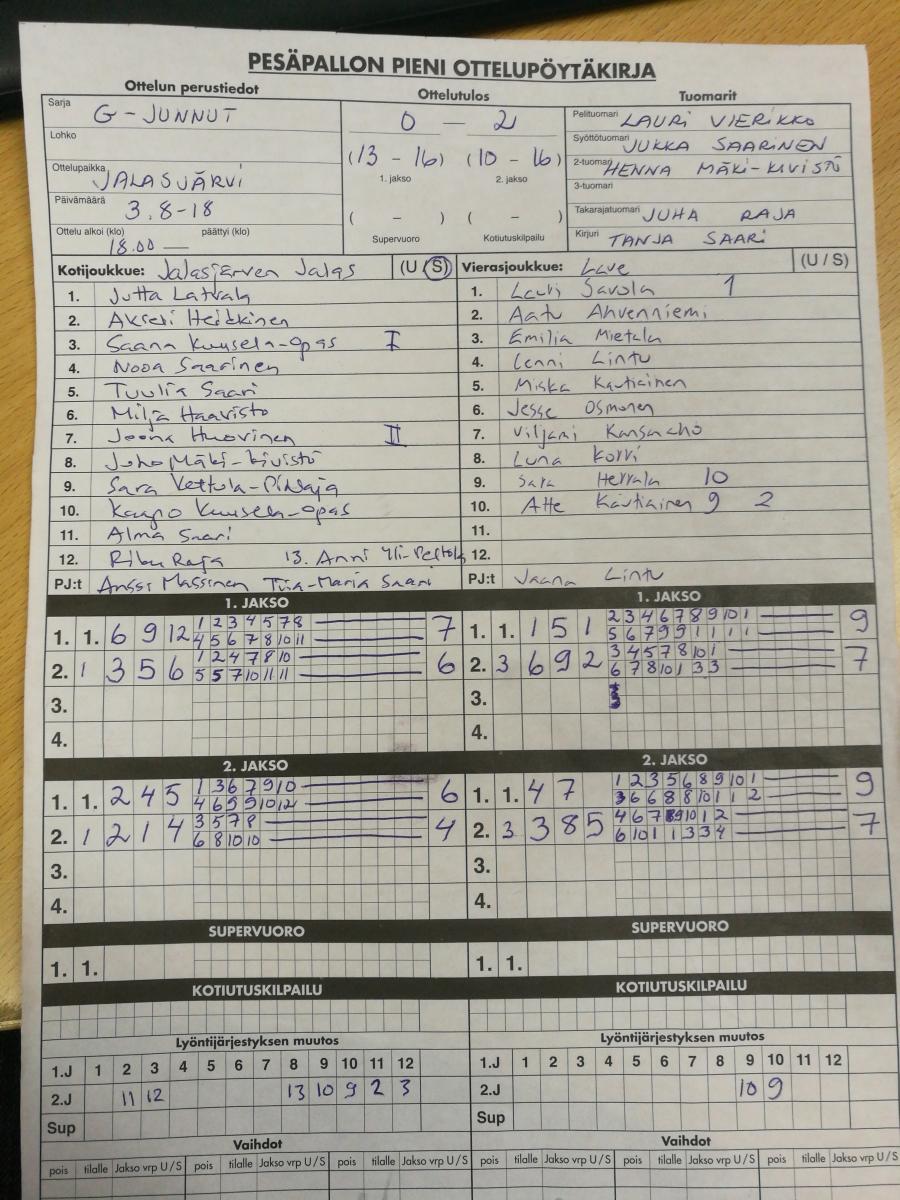 PESÄPALLON PIENI OTTELUPÖYTÄKIRJA
Ottelun perustiedot Ottelutulos Tuomarit
Sarja G-JUNNUT
Lohko
Ottelupaikka JALASJÄRVI
Päivämäärä 3.8-18
Ottelu alkoi (klo) 18.00 — päättyi (klo)
0 — 2
(13 - 16) (10 - 16)
1. jakso 2. jakso
( - ) ( - )
Supervuoro Kotiutuskilpailu
Pelituomari LAURI VIERIKKO
Syöttötuomari JUKKA SAARINEN
2-tuomari HENNA MÄKI-KIVISTÖ
3-tuomari
Takarajatuomari JUHA RAJA
Kirjuri TANJA SAARI
Kotijoukkue: Jalasjärven Jalas (U / S)
1. Jutta Latvala
2. Akseli Heikkinen
3. Saana Kuusela-Opas I
4. Noora Saarinen
5. Tuulia Saari
6. Milja Haavisto
7. Joona Huovinen II
8. Juho Mäki-Kivistö
9. Sara
10. Kuusela-Opas
11. Alma Saari
12. Raja 13. Anni
PJ:t Anssi Massinen Tiia-Maria Saari
Vierasjoukkue: (U / S)
1. Lauri Savola 1
2. Aatu Ahvenniemi
3. Emilia Mietala
4. Lenni Lintu
5. Miska Kautiainen
6. Jesse Osmonen
7. Viljami Kansacho
8. Luna Korri
9. Sara Herrala 10
10. Atte Kautiainen 9 2
11.
12.
PJ:t Jaana Lintu
1. JAKSO
1. 1. 6 9 12 1 2 3 4 5 7 8 7
4 5 6 7 8 10 11
2. 1 3 5 6 1 2 4 7 8 10 6
5 5 7 10 11 11
3.
4.
1. JAKSO
1. 1. 1 5 1 2 3 4 6 7 8 9 10 1 9
5 6 7 9 9 1 1 1 1
2. 3 6 9 2 3 4 5 7 8 10 1 7
6 7 8 10 1 3 3
3.
4.
2. JAKSO
1. 1. 2 4 5 1 3 6 7 9 10 6
4 6 9 9 10 12
2. 1 2 1 4 3 5 7 8 4
6 8 10 10
3.
4.
2. JAKSO
1. 1. 4 7 1 2 3 5 6 8 9 10 1 9
3 6 6 8 8 10 1 1 2
2. 3 3 8 5 4 6 7 8 9 10 1 2 7
6 10 1 1 3 3 4
3.
4.
SUPERVUORO SUPERVUORO
1. 1. 1. 1.
KOTIUTUSKILPAILU KOTIUTUSKILPAILU
Lyöntijärjestyksen muutos Lyöntijärjestyksen muutos
1.J 1 2 3 4 5 6 7 8 9 10 11 12 1.J 1 2 3 4 5 6 7 8 9 10 11 12
2.J 11 12 13 10 9 2 3 2.J 10 9
Sup Sup
Vaihdot Vaihdot
pois tilalle Jakso vrp U / S pois tilalle Jakso vrp U / S pois tilalle Jakso vrp U / S pois tilalle Jakso vrp U / S pois tilalle Jakso vrp U / S pois tilalle Jakso vrp U / S